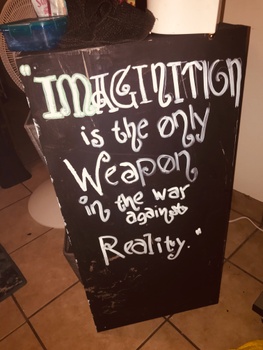 "IMAGINITION
is the only
Weapon
in the war
against
Reality."